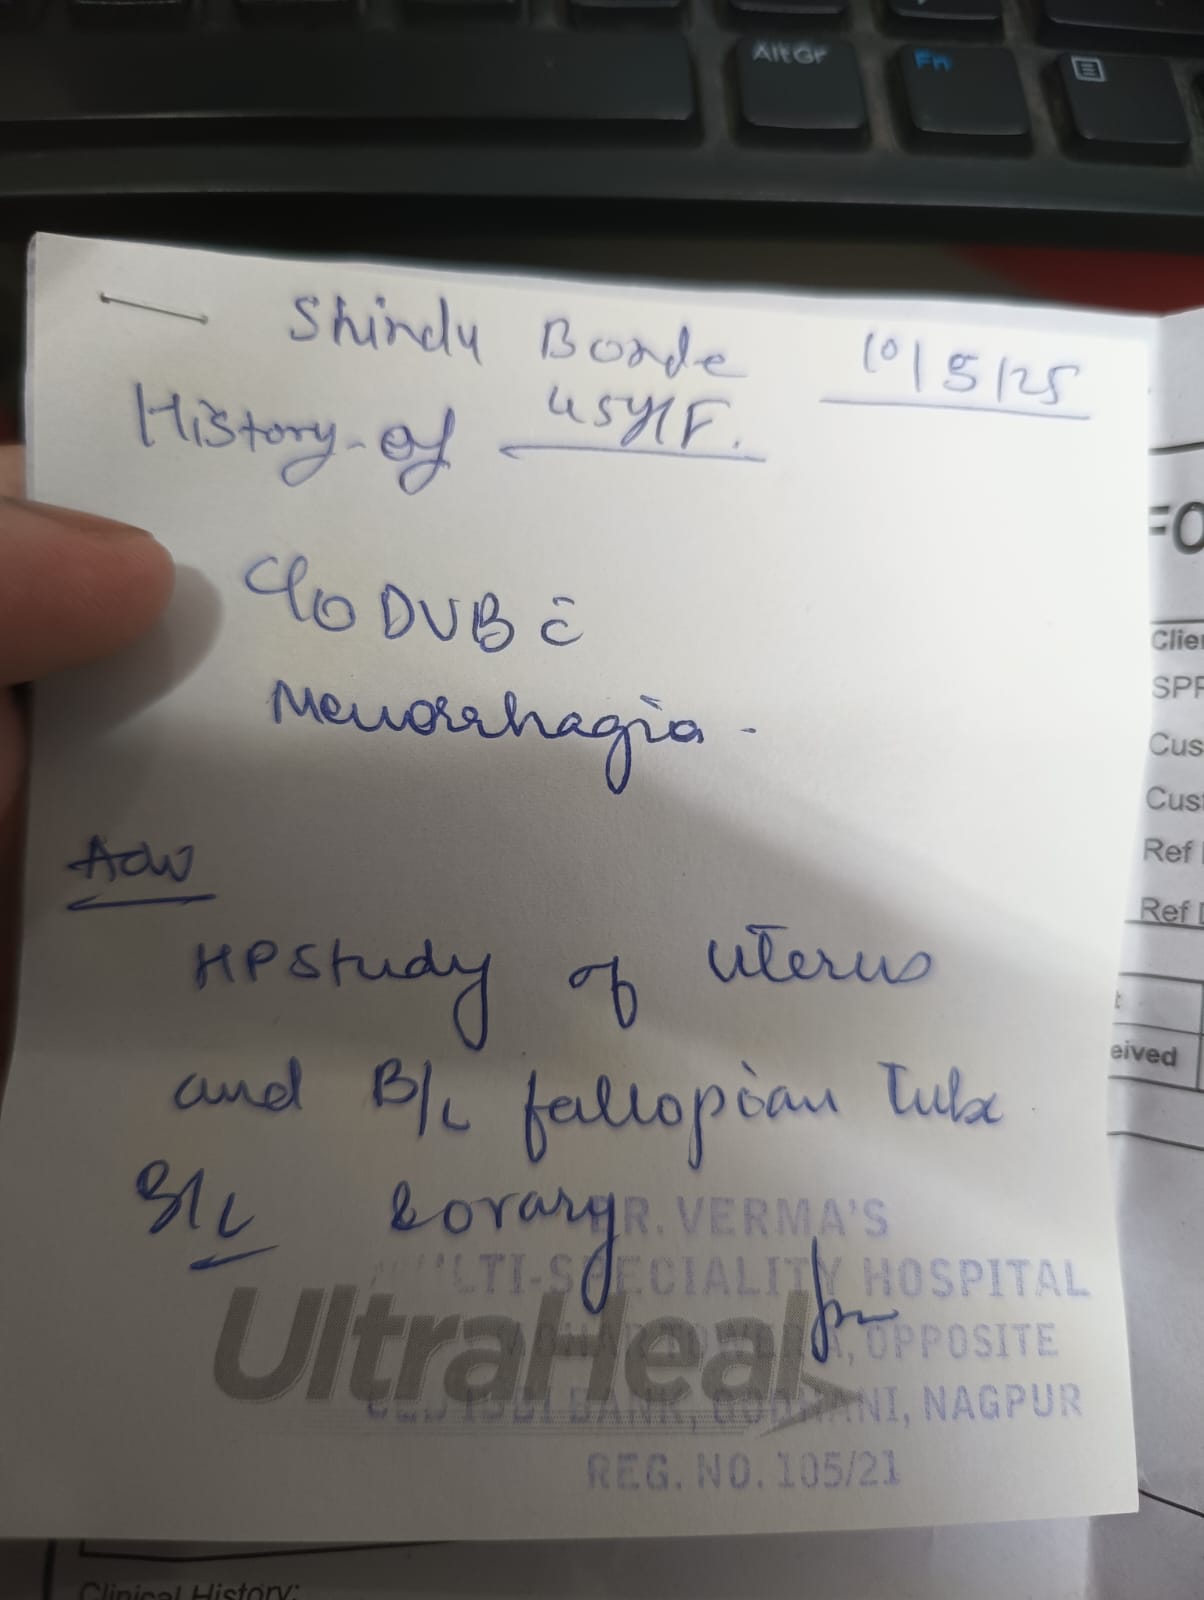 AltGr Fn
Shindu Borde 10/5/25
History of 45y/F.
C/o DUB c̄
Menorrhagia.
Adv
HP study of uterus
and B/L fallopian Tube
B/L & ovary
DR. VERMA'S
MULTI-SPECIALITY HOSPITAL
OPPOSITE
UltraHeal
BANK, GODHANI, NAGPUR
REG. NO. 105/21
FO
Clie
SPP
Cus
Cust
Ref
Ref
eived
Clinical History: